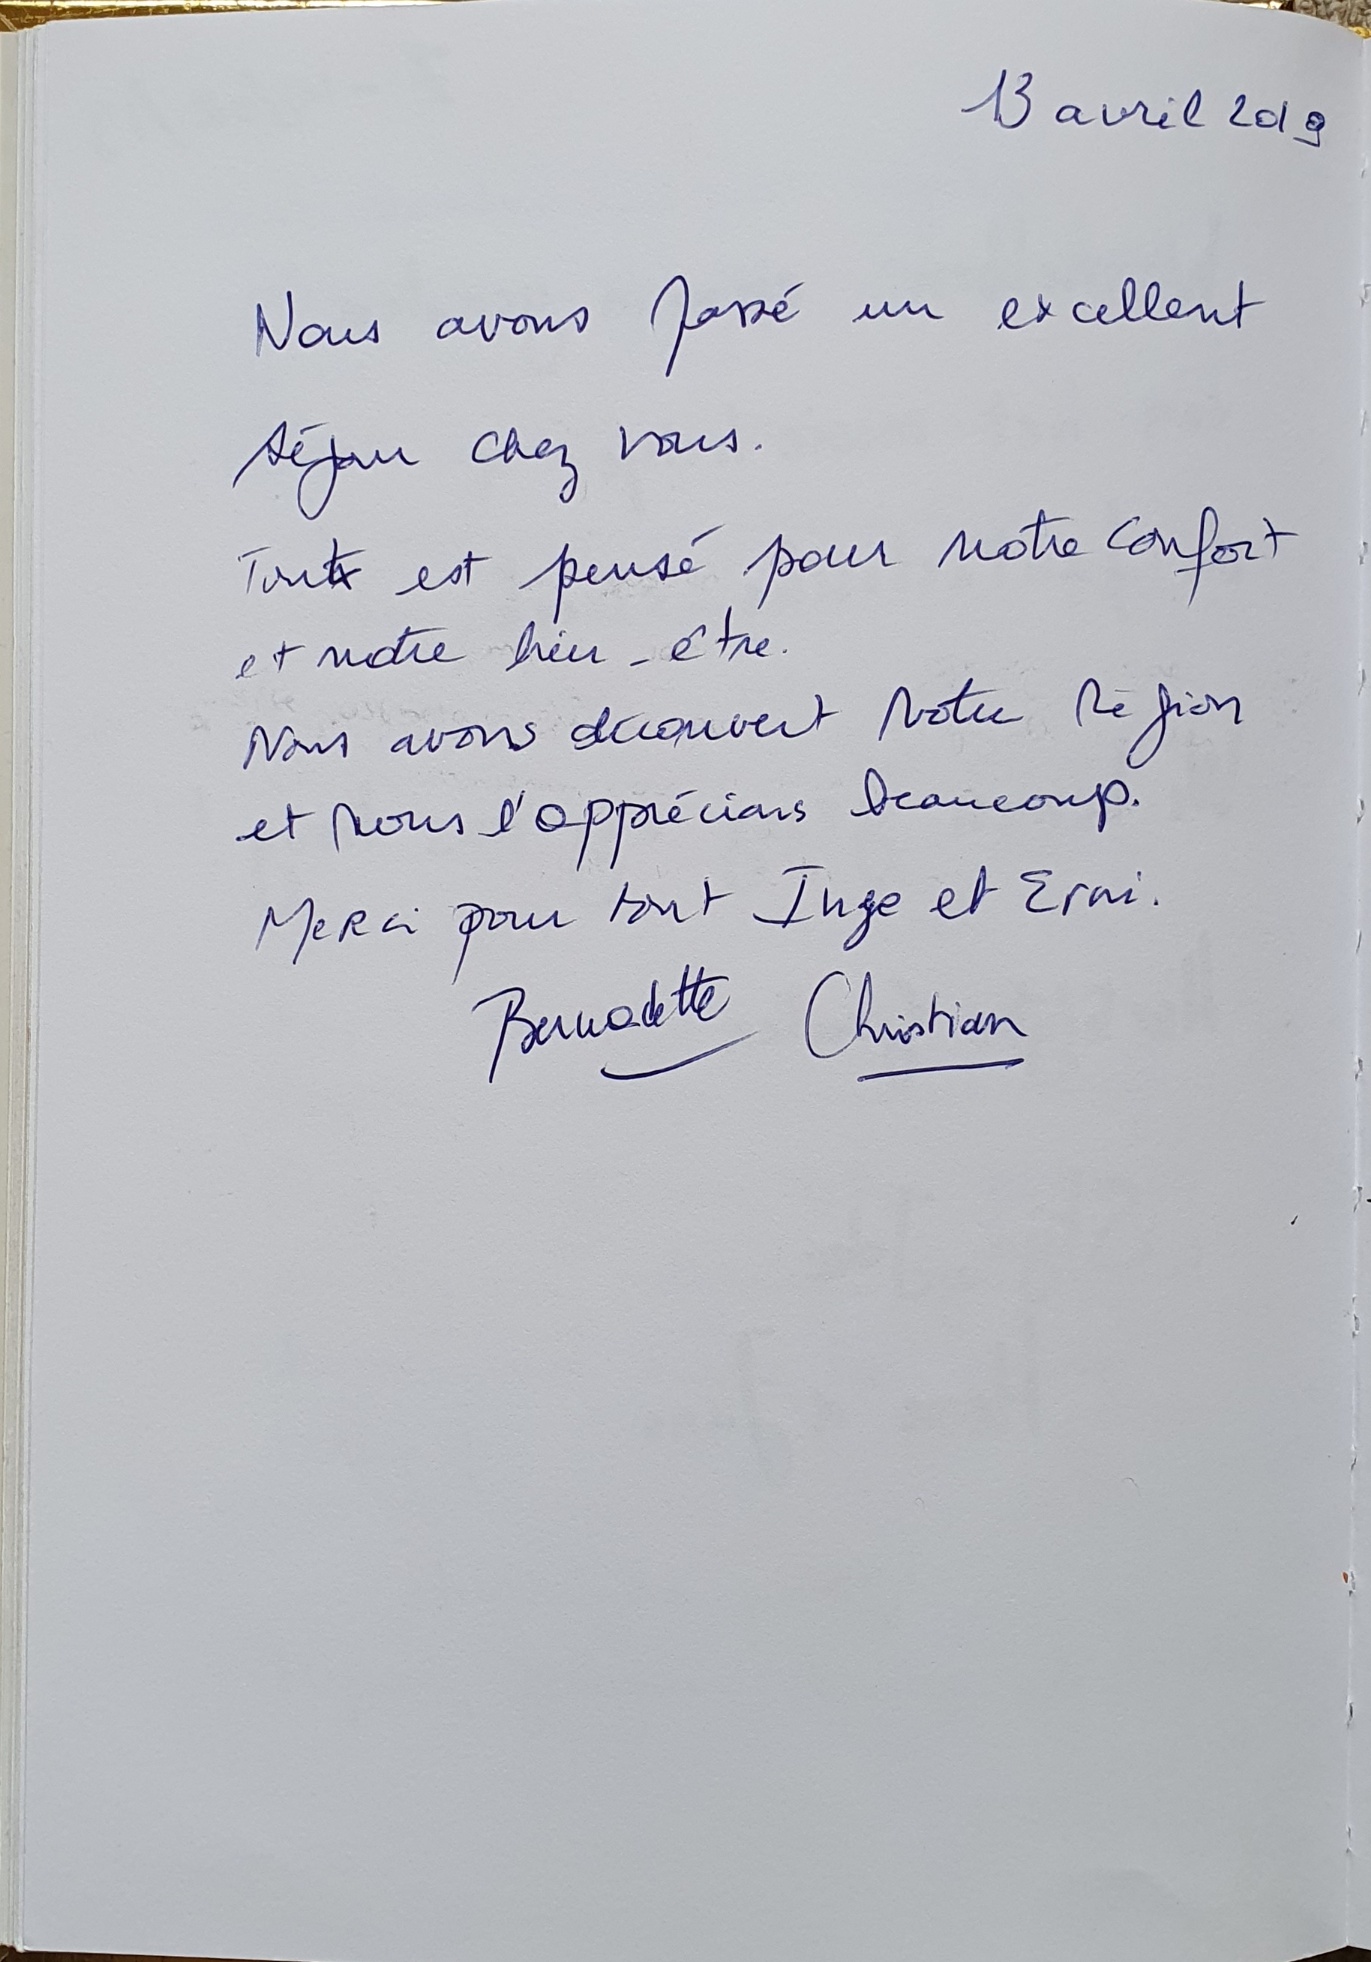 13 avril 2019
Nous avons passé un excellent
séjour chez vous.
Tout est pensé pour notre confort
et notre bien-être.
Nous avons découvert votre région
et nous l'apprécions beaucoup.
Merci pour tout Inge et Erni.
Bernadette Christian